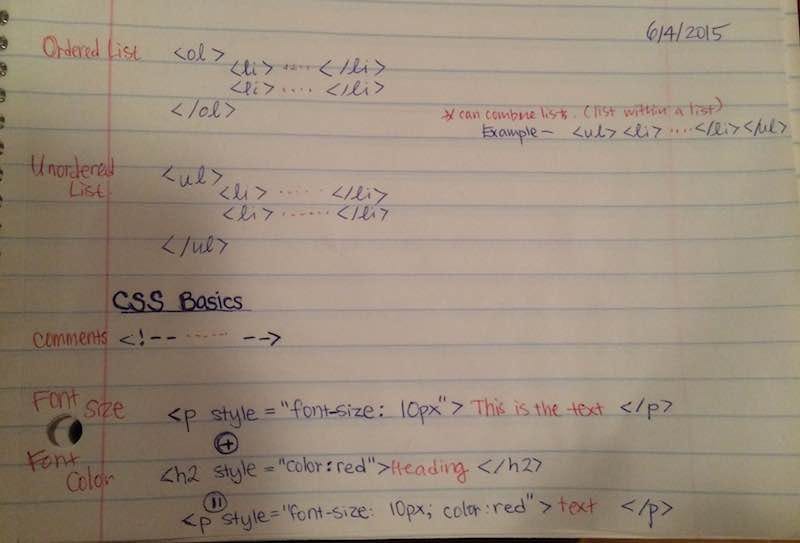 6/4/2015
Ordered List <ol>
<li> ..... </li>
<li> .... </li>
</ol>
* can combine lists. (list within a list)
Example - <ul> <li> .... </li> </ul>
Unordered List <ul>
<li> ..... </li>
<li> ...... </li>
</ul>
CSS Basics
comments <!-- ...... -->
Font size <p style = "font-size: 10px"> This is the text </p>
+
Font Color <h2 style = "color:red">Heading </h2>
=
<p style="font-size: 10px; color:red" > text </p>